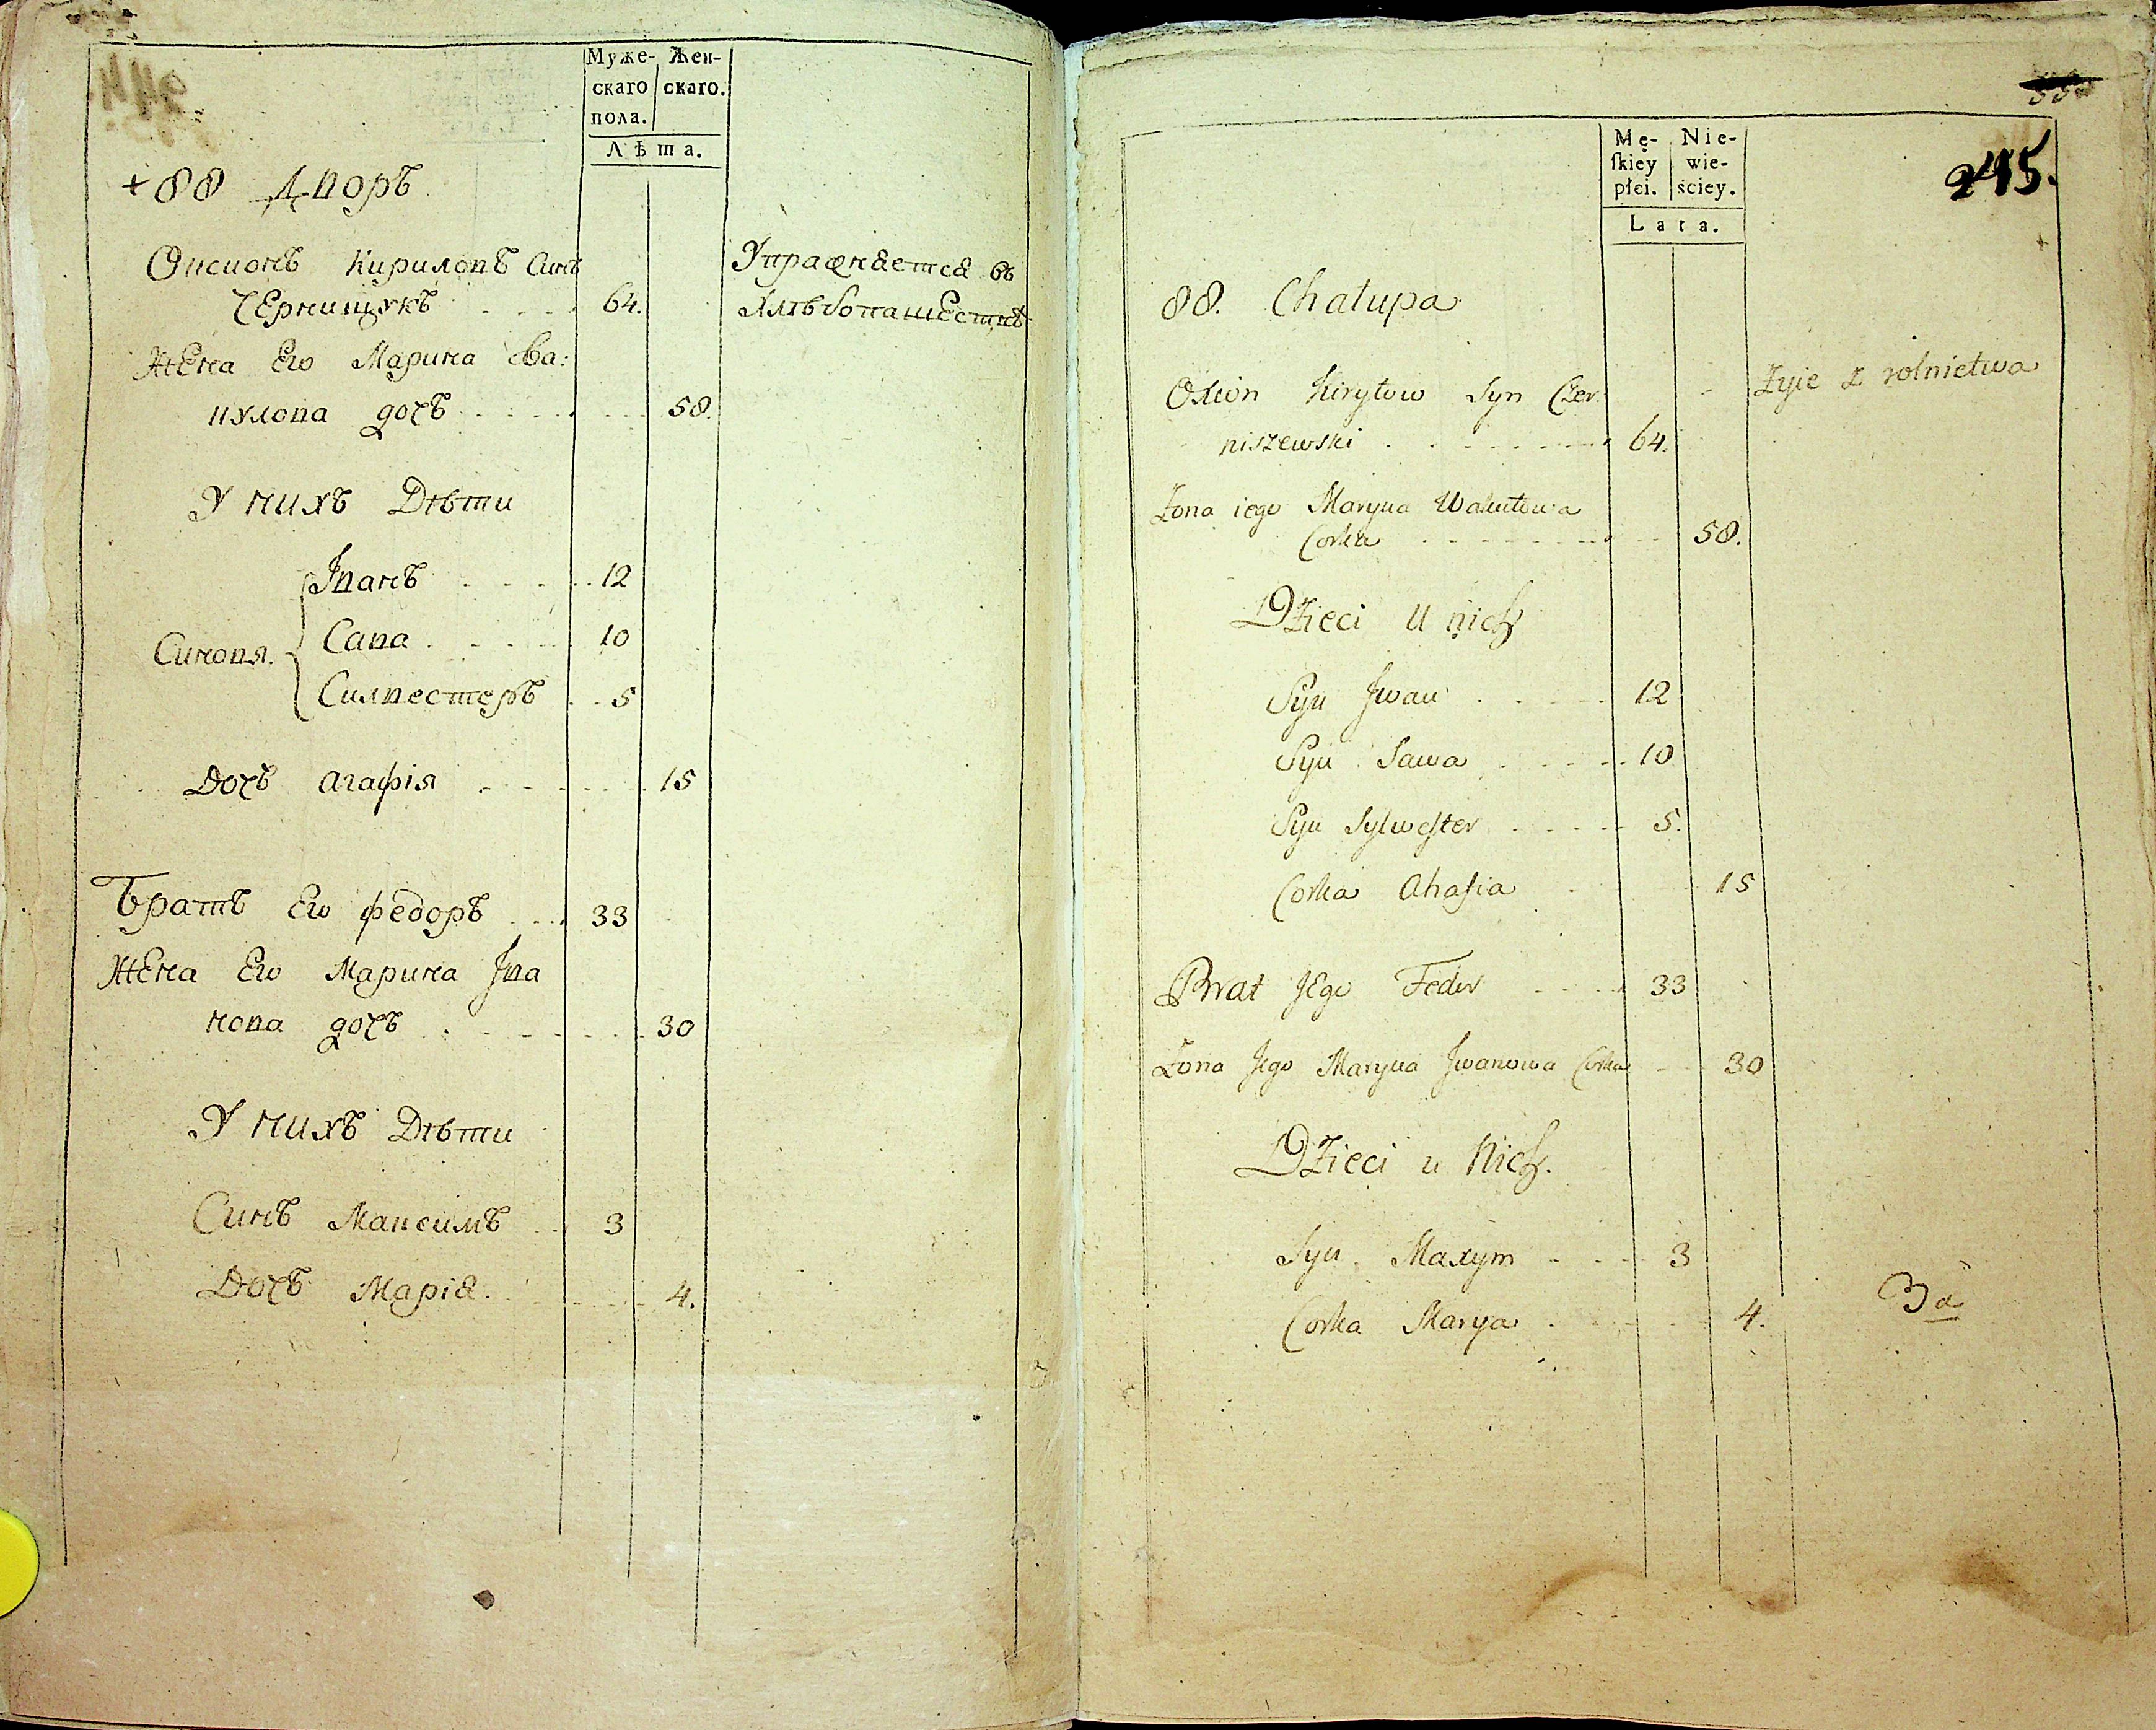 Муже- Жен-
скаго скаго.
пола.
Лѣта.
+ 88 Дворъ
Оксионъ Кириловъ Синъ
Чернищукъ 64.
Упражняется въ
Хлѣбопашествѣ
Жена Его Марина Ва:
кулова дочъ 58.
У нихъ Дѣти
Иванъ 12
Синовя. Сава 10
Силвестеръ 5
Дочъ Агафія 15
Братъ Его Федоръ 33
Жена Его Марина Ива
нова дочъ 30
У нихъ Дѣти
Синъ Максимъ 3
Дочъ Марія. 4.
245.
Mę- Nie-
ſkiey wie-
płci. ściey.
Lata.
88. Chałupa
Oxion Kiryłow Syn Czer-
niszewski 64.
Żyie z rolnictwa
Żona iego Maryna Wakułowa
Corka 58.
Dzieci U nich
Syn Jwan 12
Syn Sawa 10
Syn Sylweſter 5.
Corka Ahafia 15
Brat Jego Fedor 33
Żona Jego Maryna Jwanowa Corka 30
Dzieci u Nich.
Syn Maxym 3
Corka Marya 4.